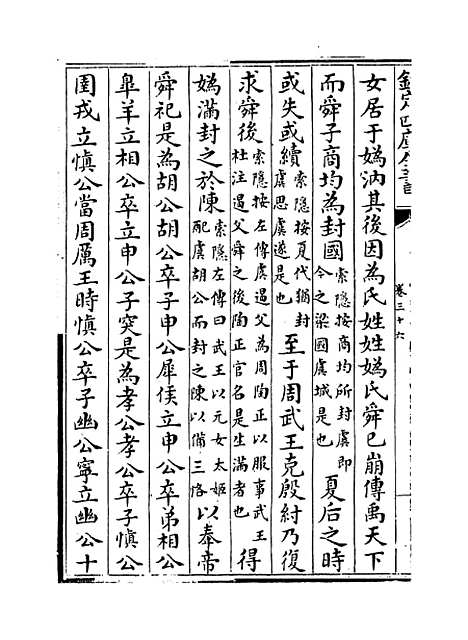 欽定四庫全書
卷三十六
女居于媯汭其後因為氏姓姓媯氏舜已崩傳禹天下
而舜子商均為封國索隱按商均所封虞即今之梁國虞城是也夏后之時
或失或續索隱按夏代猶封虞思虞遂是也至于周武王克殷紂乃復
求舜後索隱按左傳虞遏父為周陶正以服事武王杜注遏父舜之後陶正官名是生滿者也得
媯滿封之於陳索隱左傳曰武王以元女太姬配虞胡公而封之陳以備三恪以奉帝
舜祀是為胡公胡公卒子申公犀侯立申公卒弟相公
臯羊立相公卒立申公子突是為孝公孝公卒子慎公
圉戎立慎公當周厲王時慎公卒子幽公寧立幽公十